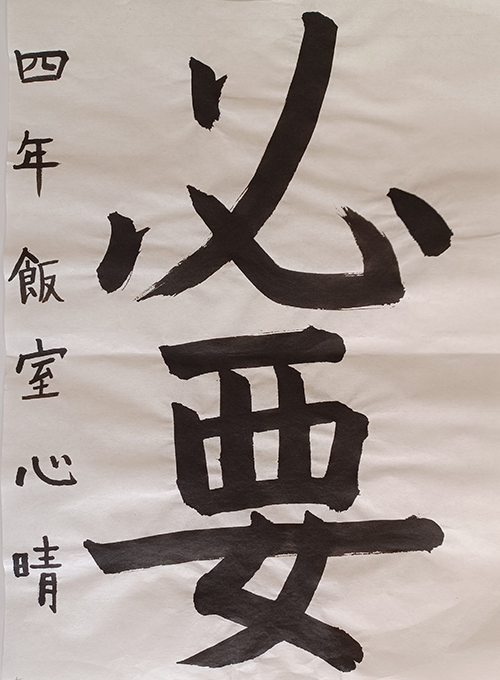 必要
四年飯室心晴